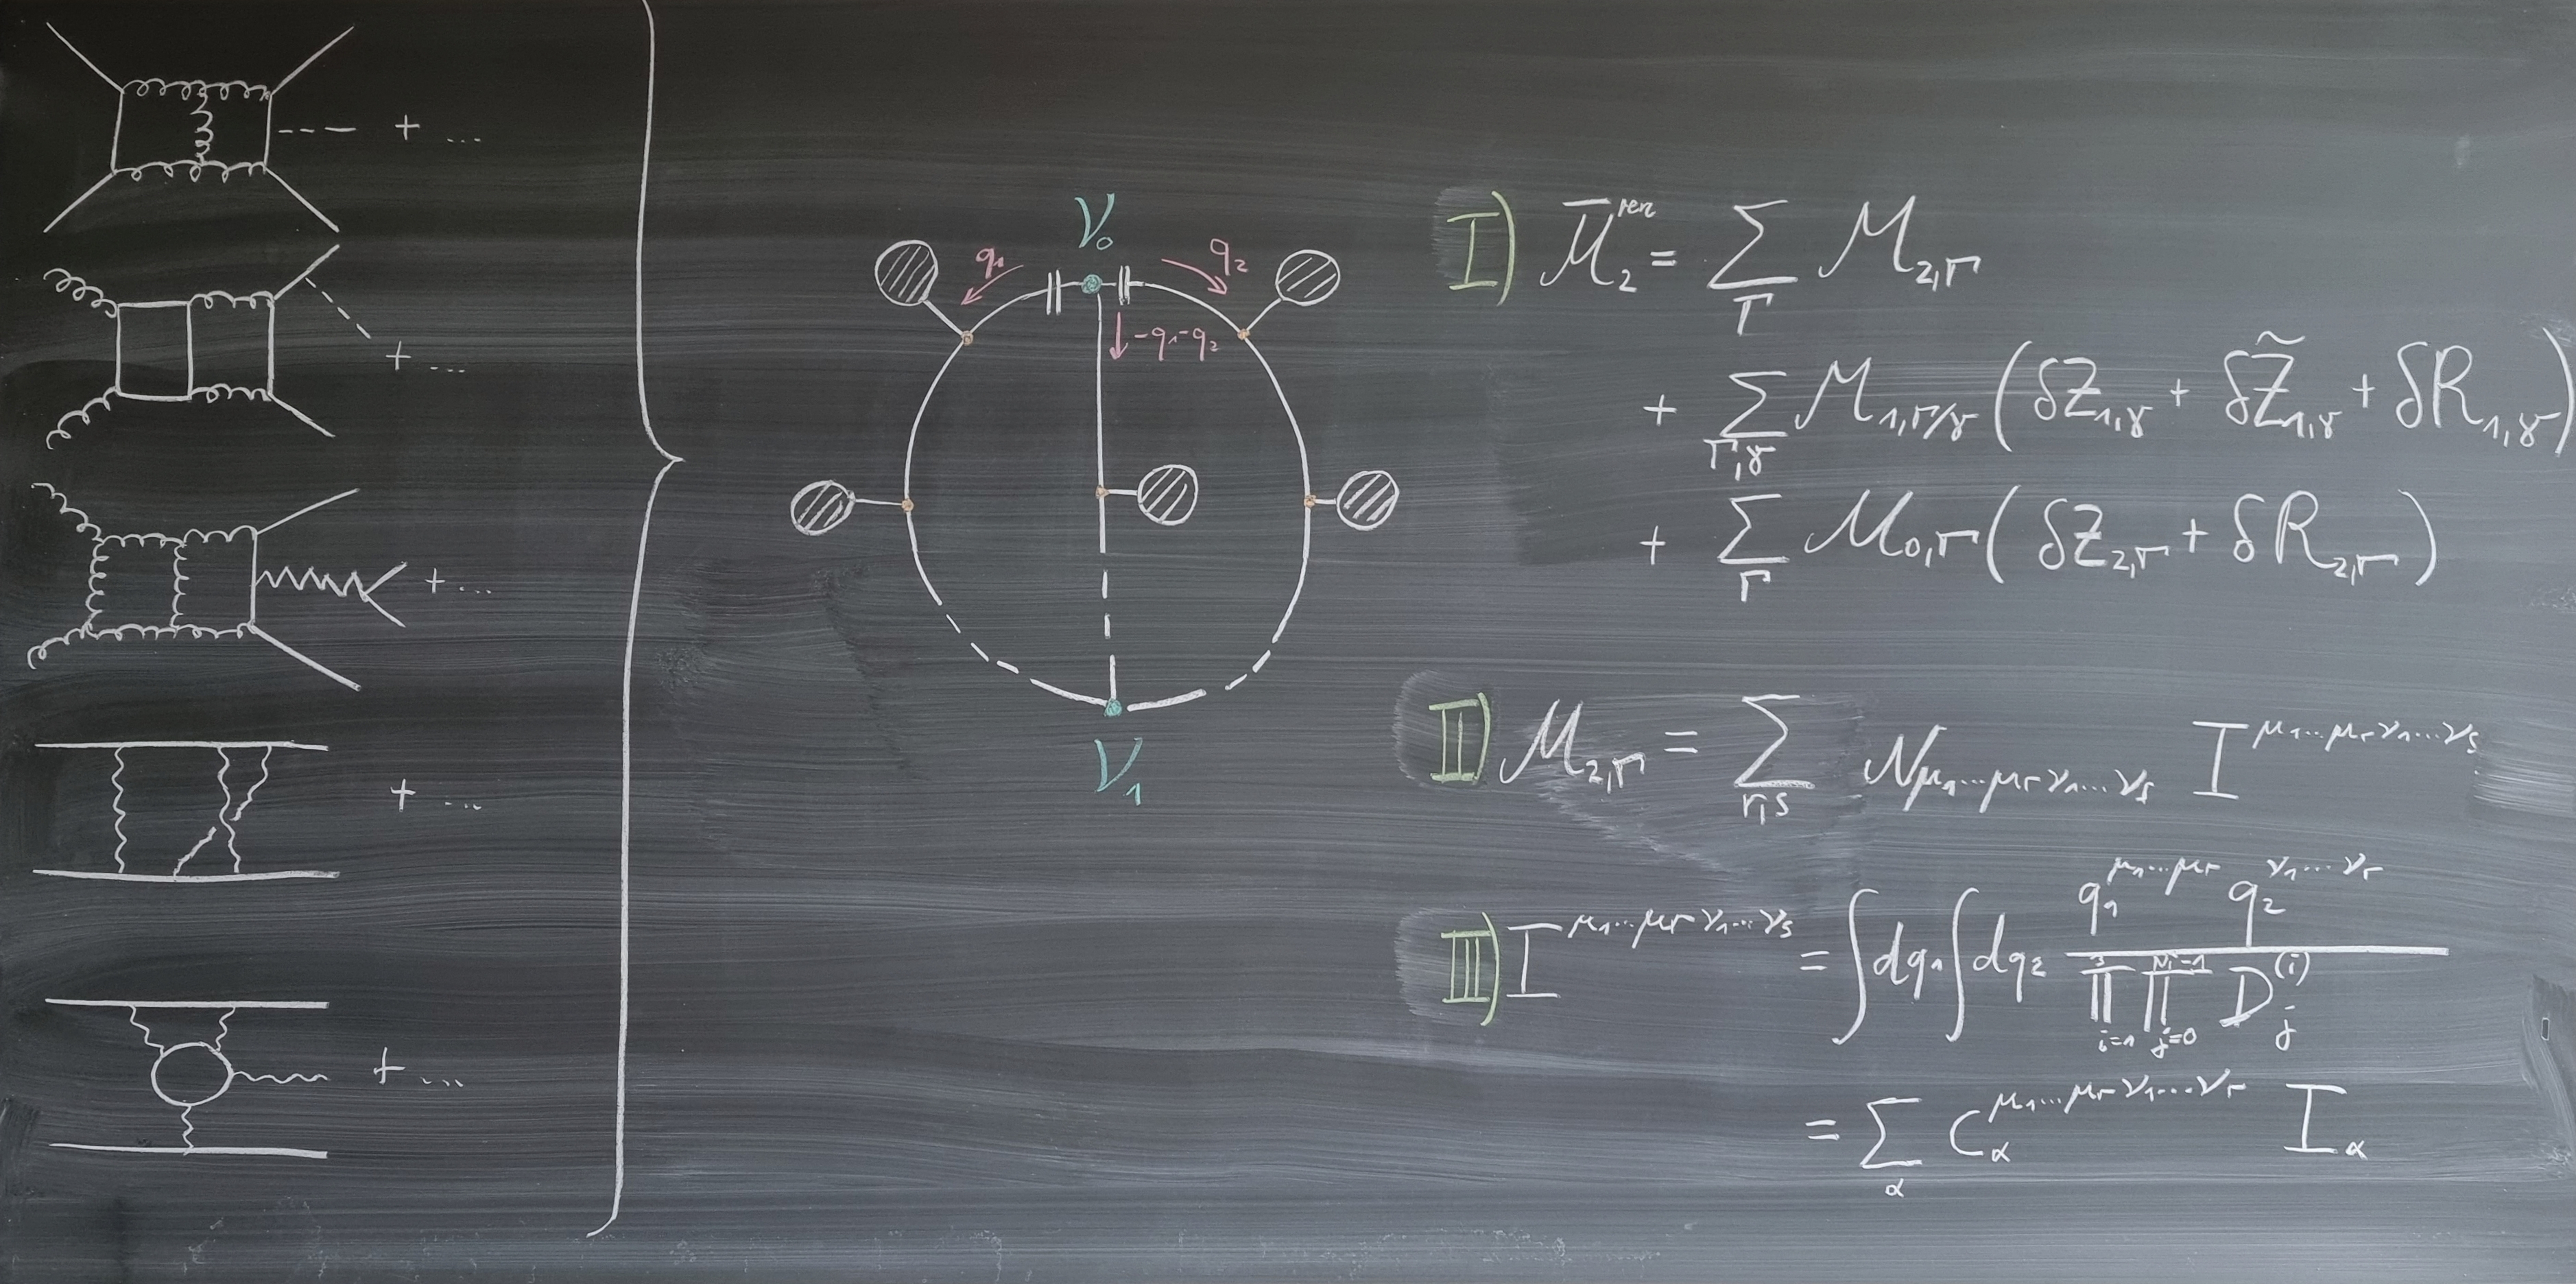 + ...
+ ...
+ ...
+ ...
+ ...
𝒱₀
q₁
q₂
-q₁-q₂
𝒱₁
I) ℳ̄₂^ren = Σ_Γ ℳ_{2,Γ}
+ Σ_{Γ,γ} ℳ_{1,Γ/γ} ( δZ_{1,γ} + δZ̃_{1,γ} + δR_{1,γ} )
+ Σ_Γ ℳ_{0,Γ} ( δZ_{2,Γ} + δR_{2,Γ} )
II) ℳ_{2,Γ} = Σ_{r,s} 𝒩_{μ₁...μᵣ ν₁...νₛ} I^{μ₁...μᵣ ν₁...νₛ}
III) I^{μ₁...μᵣ ν₁...νₛ} = ∫dq₁ ∫dq₂ q₁^{μ₁...μᵣ} q₂^{ν₁...νᵣ} / ∏_{i=1}^{3} ∏_{j=0}^{N_i-1} D_j^{(i)}
= Σ_α C_α^{μ₁...μᵣ ν₁...νᵣ} I_α